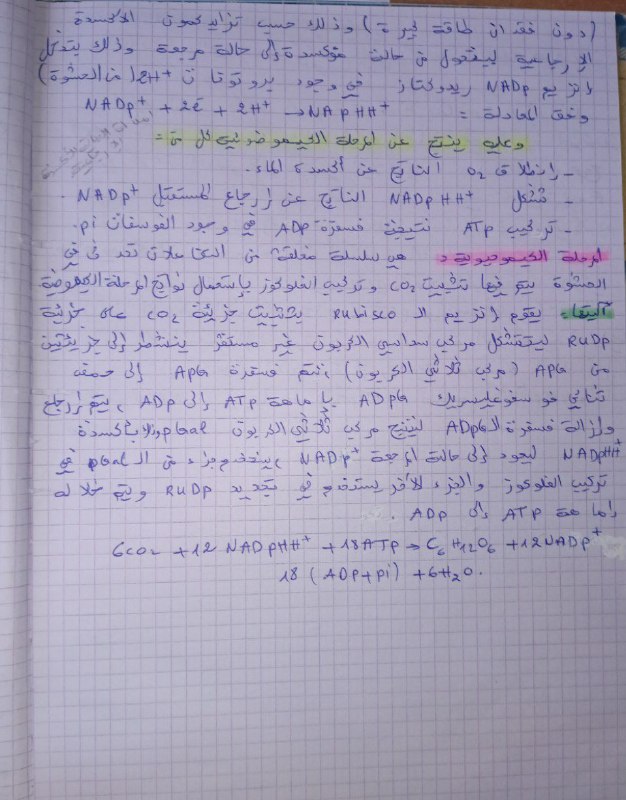 (دون فقدان طاقة كبيرة) وذلك حسب تزايد كمون الأكسدة
الإرجاعية لينتقل من حالة مؤكسدة إلى حالة مرجعة وذلك بتدخل
إنزيم NADP ريدوكتاز في وجود بروتونات 2H⁺ (من الحشوة)
وفق المعادلة : NADp⁺ + 2é + 2H⁺ → NAPHH⁺
وعليه ينتج عن المرحلة الكيموضوئية كل من :
- إنطلاق O₂ الناتج عن أكسدة الماء.
- تشكل NADPHH⁺ الناتج عن إرجاع المستقبل NADP⁺.
- تركيب ATP نتيجة فسفرة ADP في وجود الفوسفات pi.
المرحلة الكيموحيوية : هي سلسلة مغلقة من التفاعلات تحدث في
الحشوة يتم فيها تثبيت CO₂ وتركيب الغلوكوز بإستعمال نواتج المرحلة الكيموضوئية
آليتها: يقوم إنزيم الـ Rubisco بتثبيت جزيئة CO₂ على جزيئة
RUDP ليتشكل مركب سداسي الكربون غير مستقر ينشطر إلى جزيئتين
من APG (مركب ثلاثي الكربون)، تتم فسفرة APG إلى حمض
ثنائي فوسفوغليسريك ADPG بإماهة ATP إلى ADP، يتم إرجاع
وإزالة فسفرة الـ ADPG لينتج مركب ثلاثي الكربون pGal والأكسدة
NADPHH⁺ ليعود إلى حالة المرجعة NADP⁺، يستخدم جزء من الـ pGal في
تركيب الغلوكوز والجزء الآخر يستخدم في تجديد RUDP ويتم خلاله
إماهة ATP إلى ADP.
6CO₂ + 12 NADPHH⁺ + 18ATP → C₆H₁₂O₆ + 12NADP⁺
18 (ADP+pi) + 6H₂O.